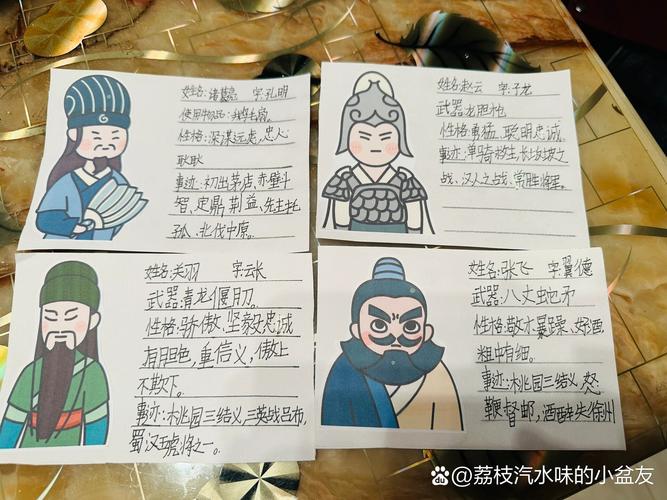 姓名:诸葛亮 字:孔明
使用物品:鹅毛扇。
性格:深谋远虑,忠心
耿耿
事迹:初出茅店、赤壁斗
智、定鼎荆益、先主托
孤、北伐中原。
姓名:赵云 字:子龙
武器:龙胆枪
性格:勇猛、聪明忠诚。
事迹:单骑救主,长坂坡之
战、汉人之战、常胜将军。
姓名:关羽 字:云长
武器:青龙偃月刀。
性格:骄傲、坚毅忠诚
有胆色,重信义,傲上
不欺下。
事迹:桃园三结义,三英战吕布,
蜀汉五虎将之一。
姓名:张飞 字:翼德
武器:八丈蛇矛
性格:敬才暴躁、好酒,
粗中有细。
事迹:桃园三结义,怒
鞭督邮,酒醉失徐州
@荔枝汽水味的小盆友